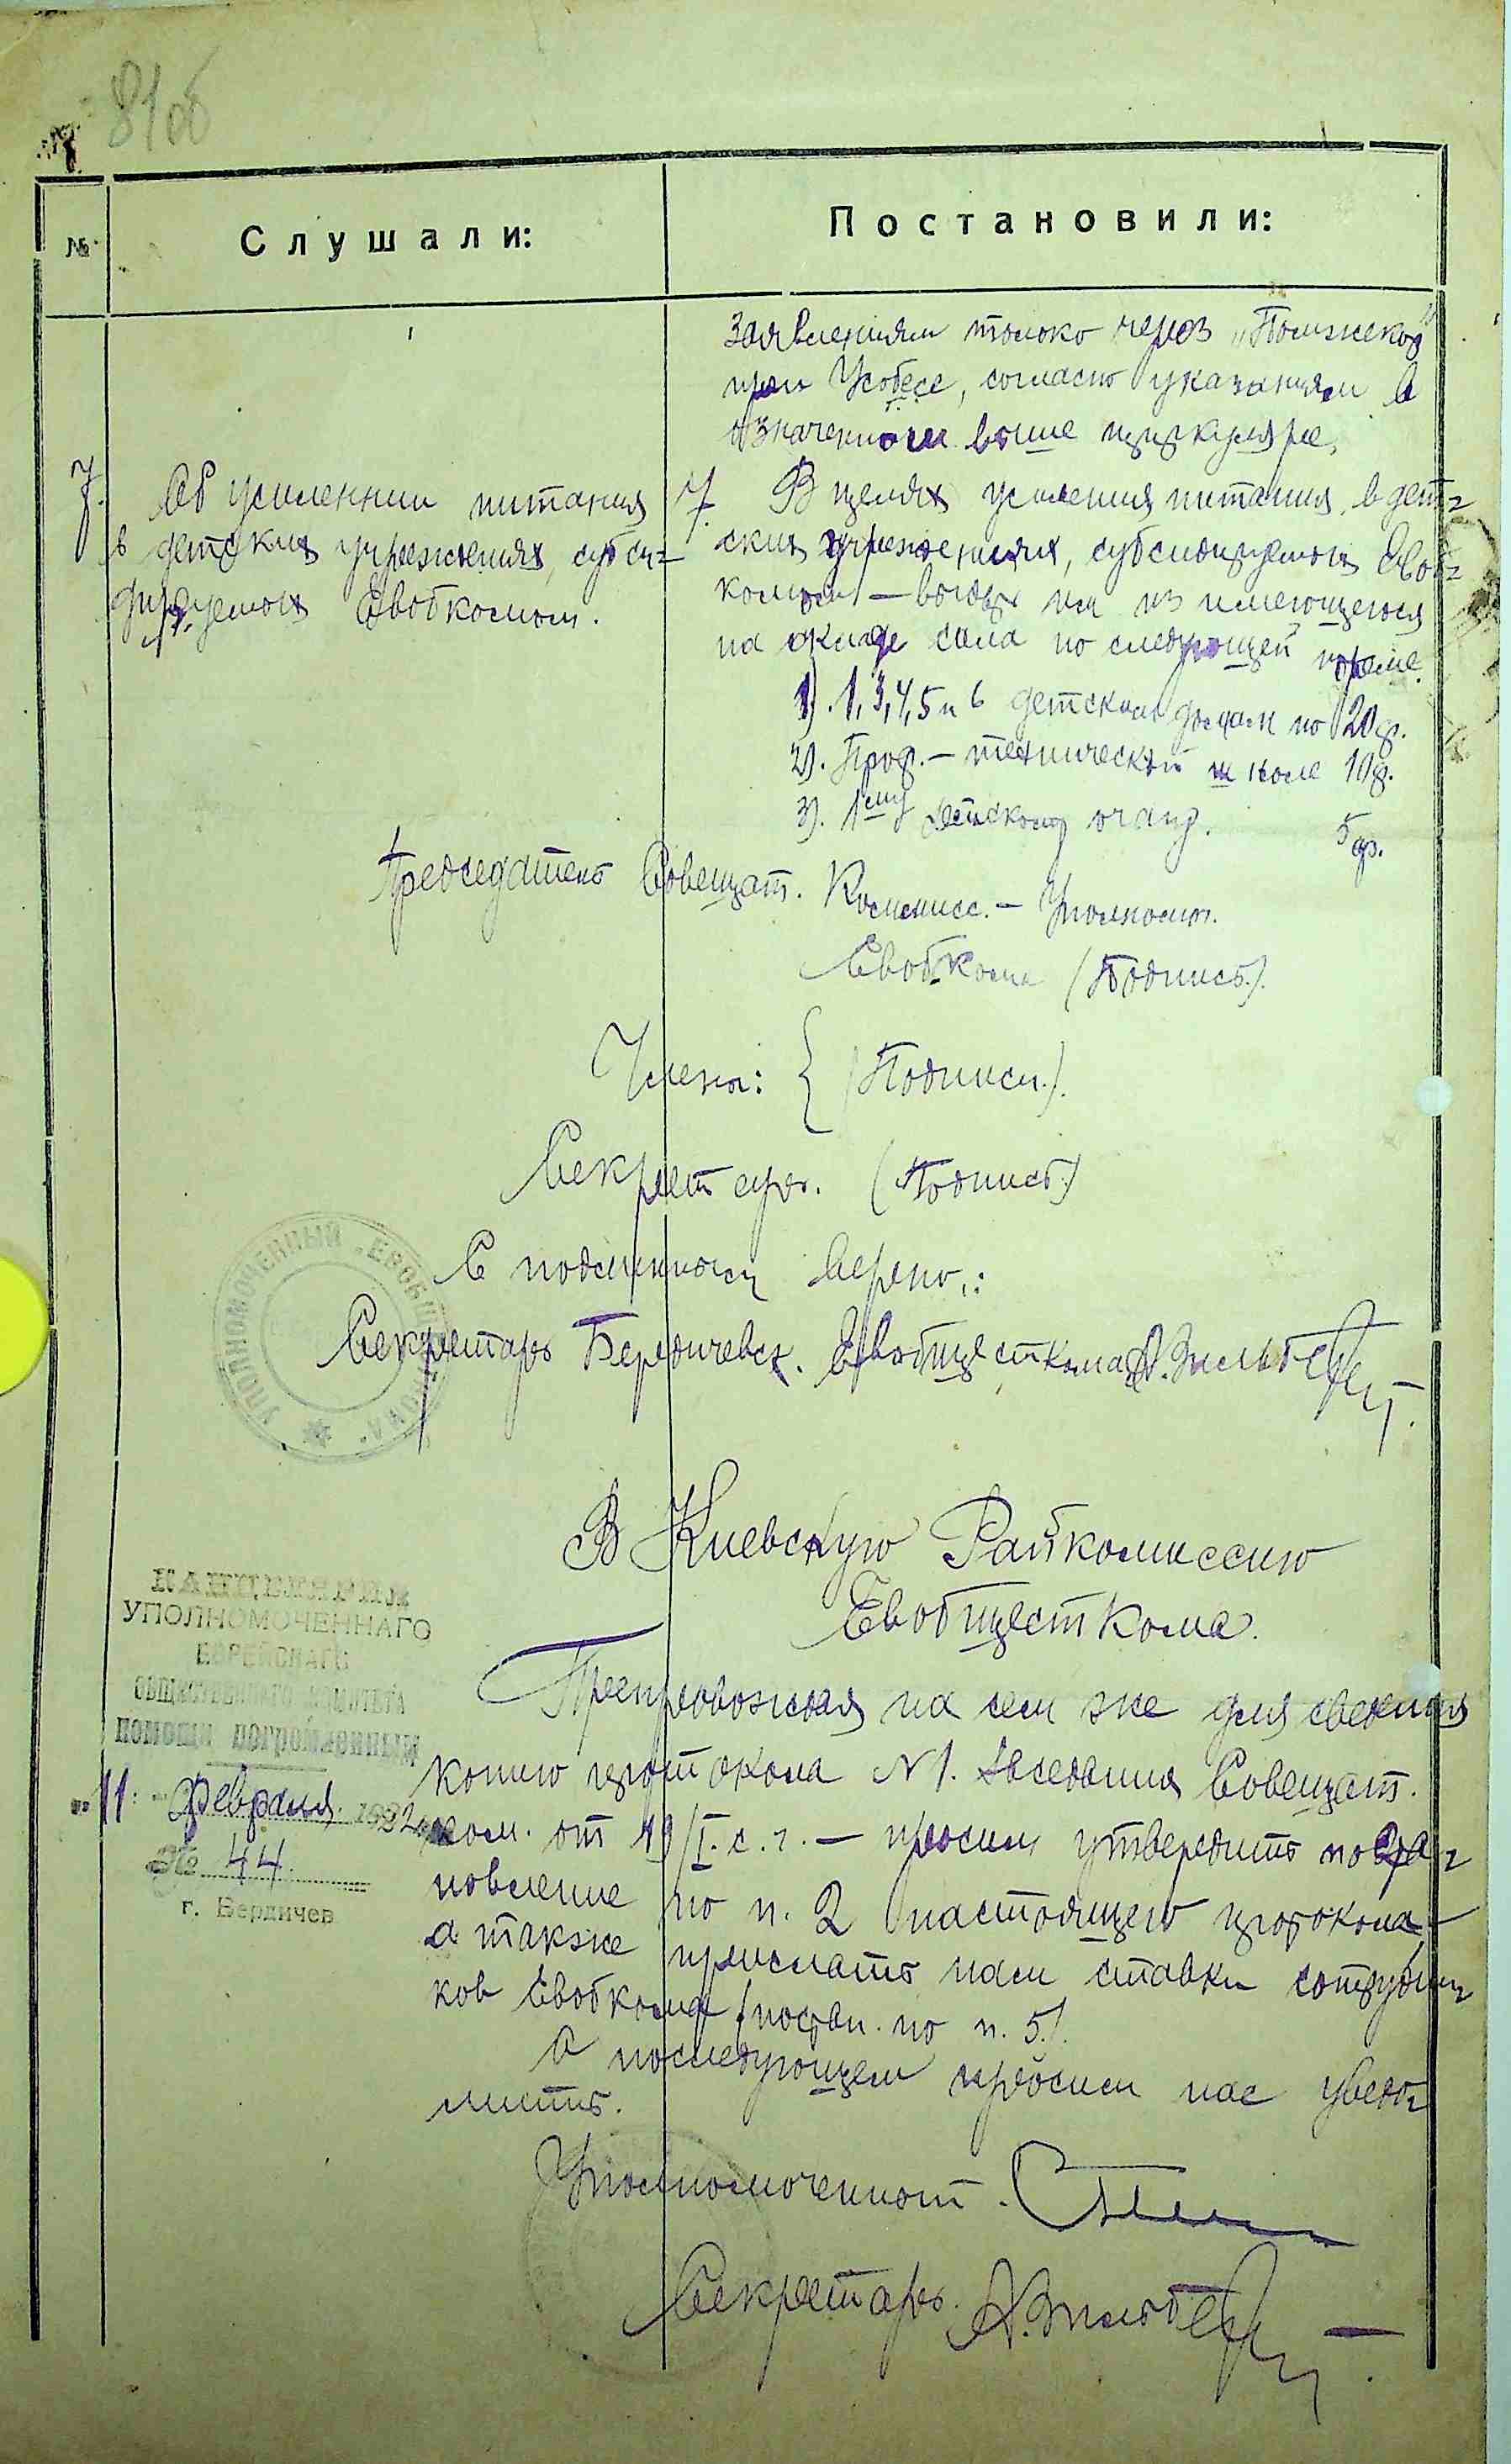 81об
№
Слушали:
Постановили:
заявлениям только через „Помжекор“
при Усобесе, согласно указаниям в
означенном выше циркуляре.
7. Об усилении питания
в детских учреждениях, субси-
дируемых Евобкомом.
7. В целях усиления питания, в дет-
ских учреждениях, субсидируемых Евоб-
комом — выдать им из имеющегося
на складе сала по следующей норме.
1). 1, 3, 4, 5 и 6 детским домам по 20 ф.
2). Проф. – технической школе 10 ф.
3). 1ому детскому очагу. 5 ф.
Председатель Совещат. Комисс. – Уполномоч.
Евобкома (Подпись).
Члены: { (Подписи).
Секретарь. (Подпись)
С подлинным верно:
Секретарь Бердичевск. Евобщесткома А. Зильберг
УПОЛНОМОЧЕННЫЙ „ЕВОБЩЕСТКОМА“
В Киевскую Райкомиссию
Евобщесткома.
КАНЦЕЛЯРИЯ
УПОЛНОМОЧЕННАГО
ЕВРЕЙСКАГО
ОБЩЕСТВЕННАГО КОМИТЕТА
ПОМОЩИ ПОГРОМЛЕННЫМ
„11“ февраля 1922
№ 44
г. Бердичев
Препровождая на сем же для сведения
копию протокола № 1. заседания Совещат.
ком. от 19/I. с. г. — просим утвердить поста-
новление по п. 2 настоящего протокола,
а также прислать нам ставки сотрудни-
ков Евобкома (постан. по п. 5).
О последующем просим нас уведо-
мить.
Уполномоченный.
Секретарь. А. Зильберг